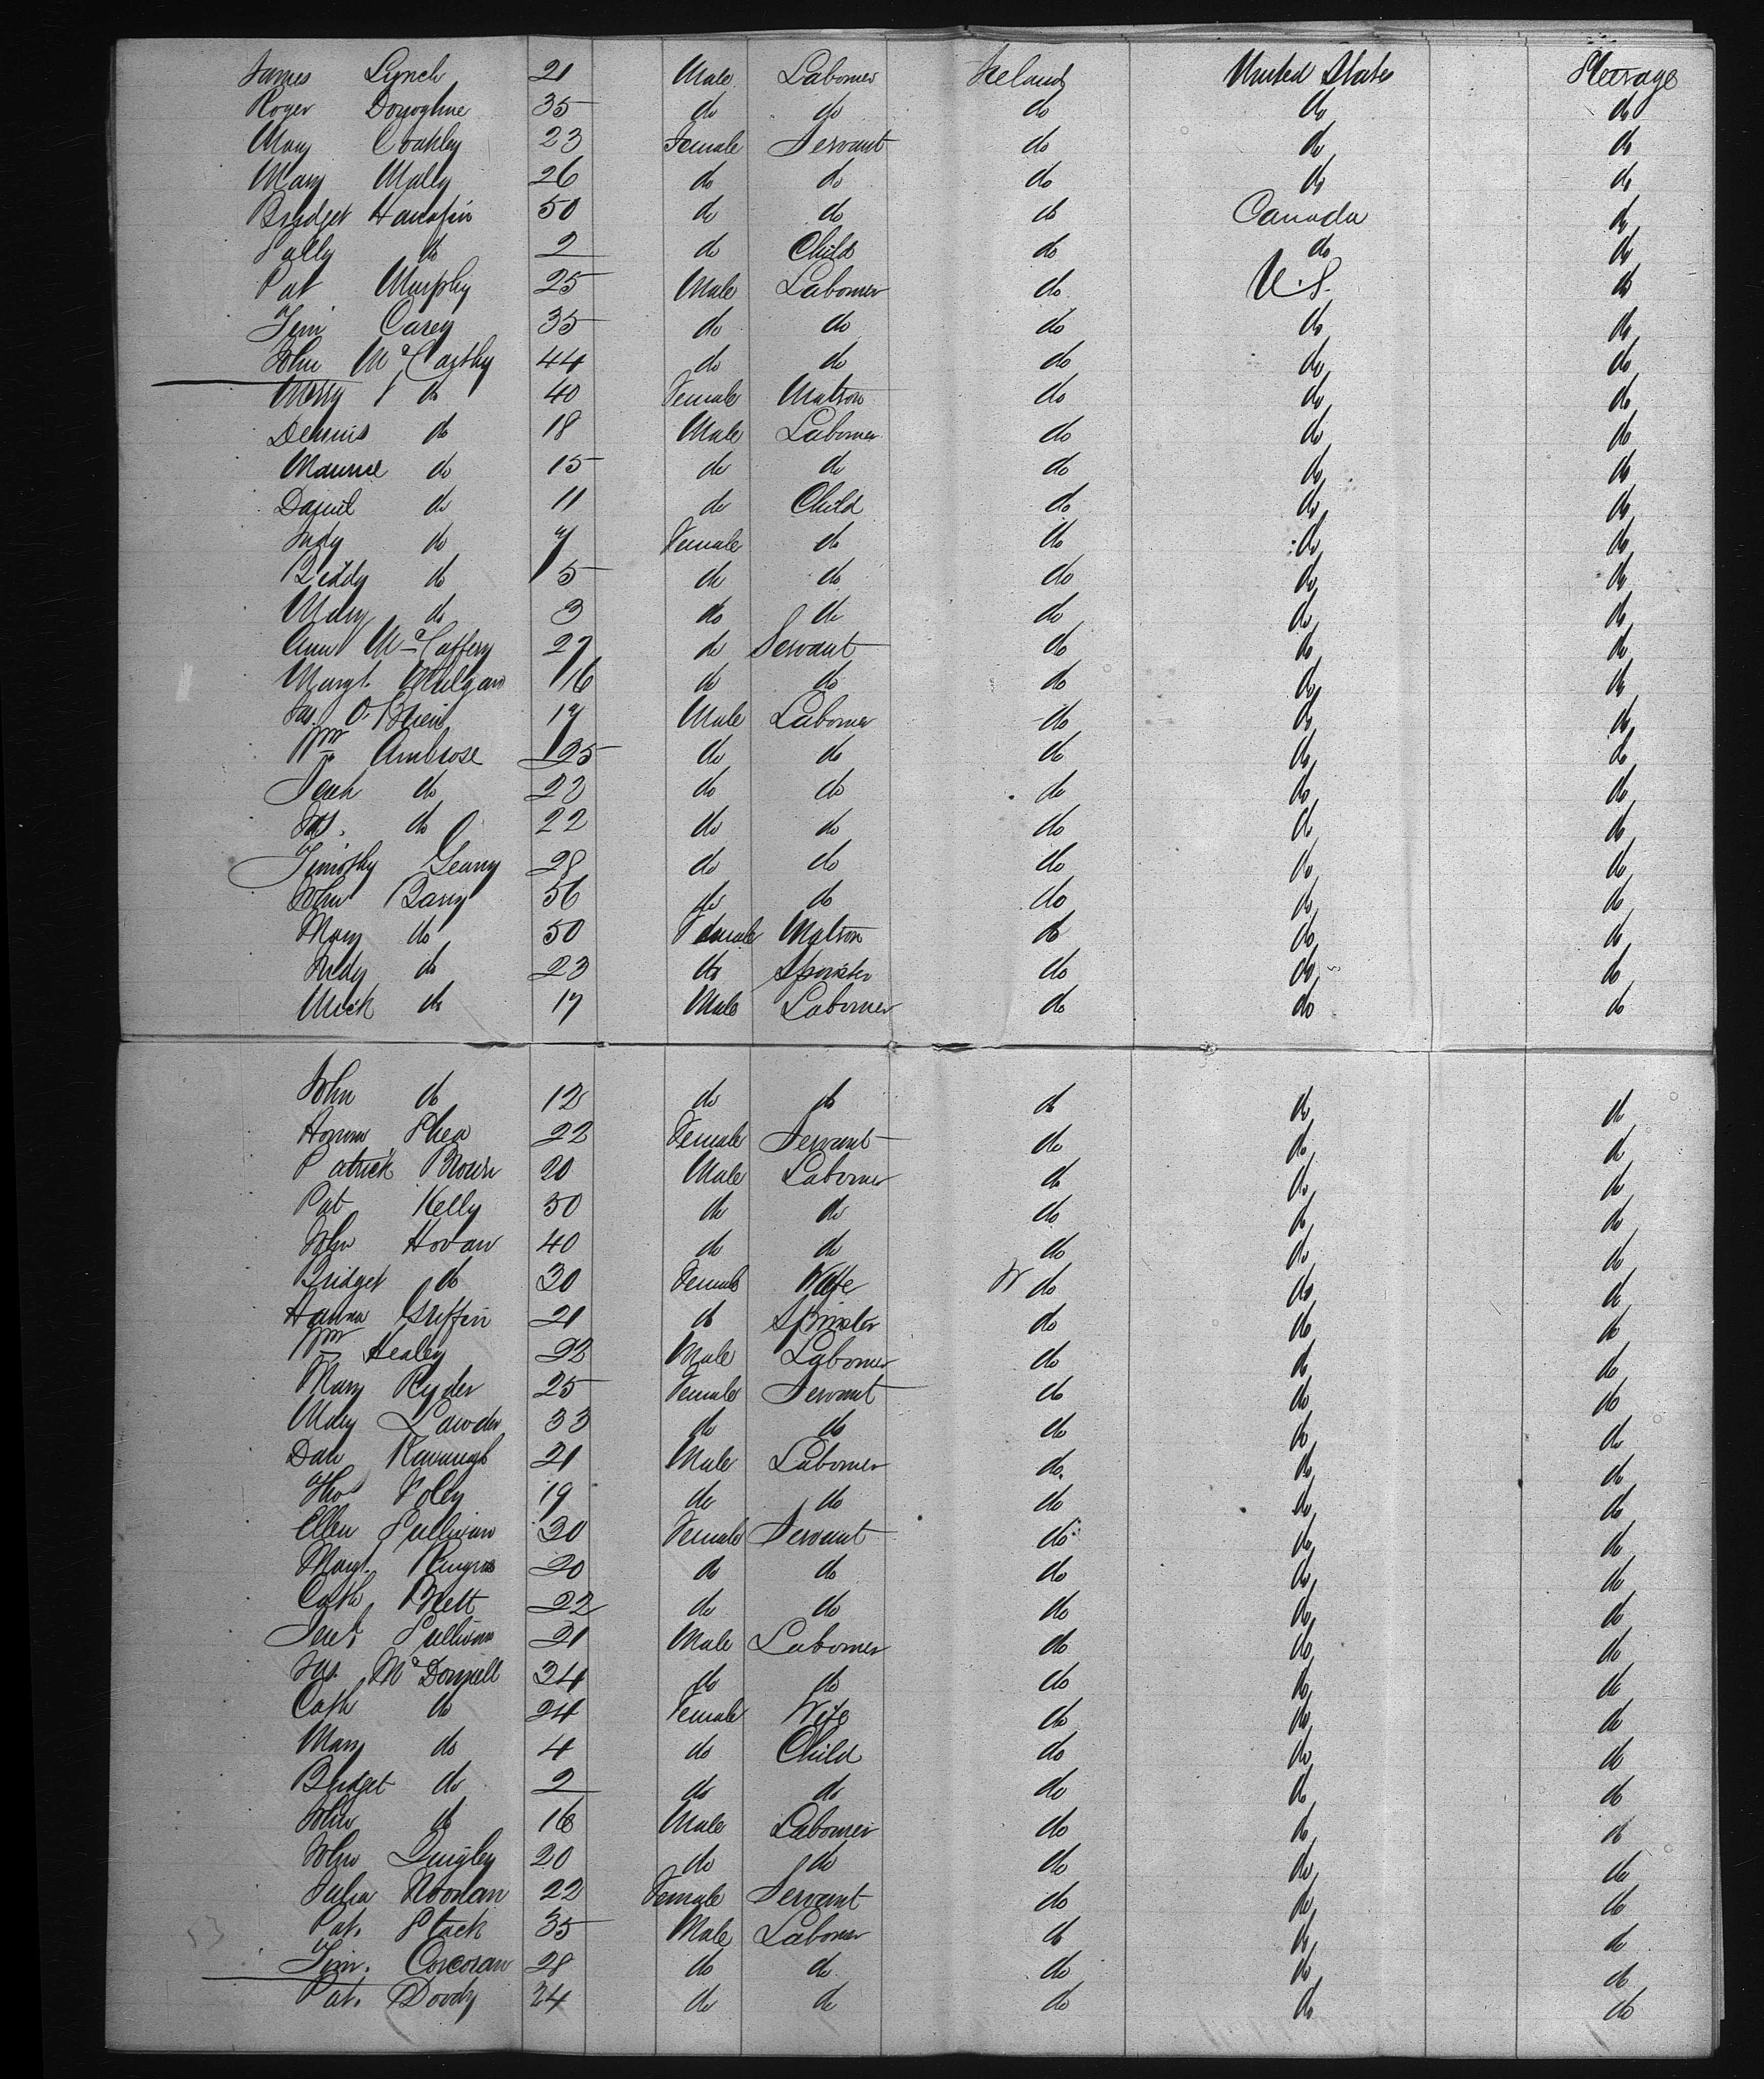 James Lynch 21 Male Laborer Ireland United States Steerage
Roger Donoghue 35 do do do do do
Mary Coakley 23 Female Servant do do do
Mary Mally 26 do do do do do
Bridget Hanafin 50 do do do Canada do
Sally do 2 do Child do do do
Pat Murphy 25 Male Laborer do U.S. do
Tim Carey 35 do do do do do
John McCarthy 44 do do do do do
Mary do 40 Female Matron do do do
Dennis do 18 Male Laborer do do do
Maurice do 15 do do do do do
Daniel do 11 do Child do do do
Judy do 7 Female do do do do
Biddy do 5 do do do do do
Mary do 3 do do do do do
Ann McCaffery 27 do Servant do do do
Margt. 16 do do do do do
Jas. O'Brien 17 Male Laborer do do do
Wm Ambrose 25 do do do do do
Jerh do 23 do do do do do
Jas. do 22 do do do do do
Timothy Geany 28 do do do do do
John Barry 56 do do do do do
Mary do 50 Female Matron do do do
Judy do 23 do Spinster do do do
Mick do 17 Male Laborer do do do
John do 12 do do do do do
Honora Shea 22 Female Servant do do do
Patrick Brown 20 Male Laborer do do do
Pat Kelly 30 do do do do do
John Horan 40 do do do do do
Bridget do 30 Female Wife do do do
Hanna Griffin 21 do Spinster do do do
Wm Healey 22 Male Laborer do do do
Mary Ryder 25 Female Servant do do do
Mary Lawder 33 do do do do do
Dan Kavanagh 21 Male Laborer do do do
Thos Foley 19 do do do do do
Ellen Sullivan 30 Female Servant do do do
Margt. 20 do do do do do
Cath Brett 22 do do do do do
Sullivan 21 Male Laborer do do do
Jas. McDonnell 34 do do do do do
Cath do 24 Female Wife do do do
Mary do 4 do Child do do do
Bridget do 2 do do do do do
John do 16 Male Laborer do do do
John Quigley 20 do do do do do
Julia Noonan 22 Female Servant do do do
Pat. Stack 35 Male Laborer do do do
Tim. Corcoran 28 do do do do do
Pat. Doody 24 do do do do do